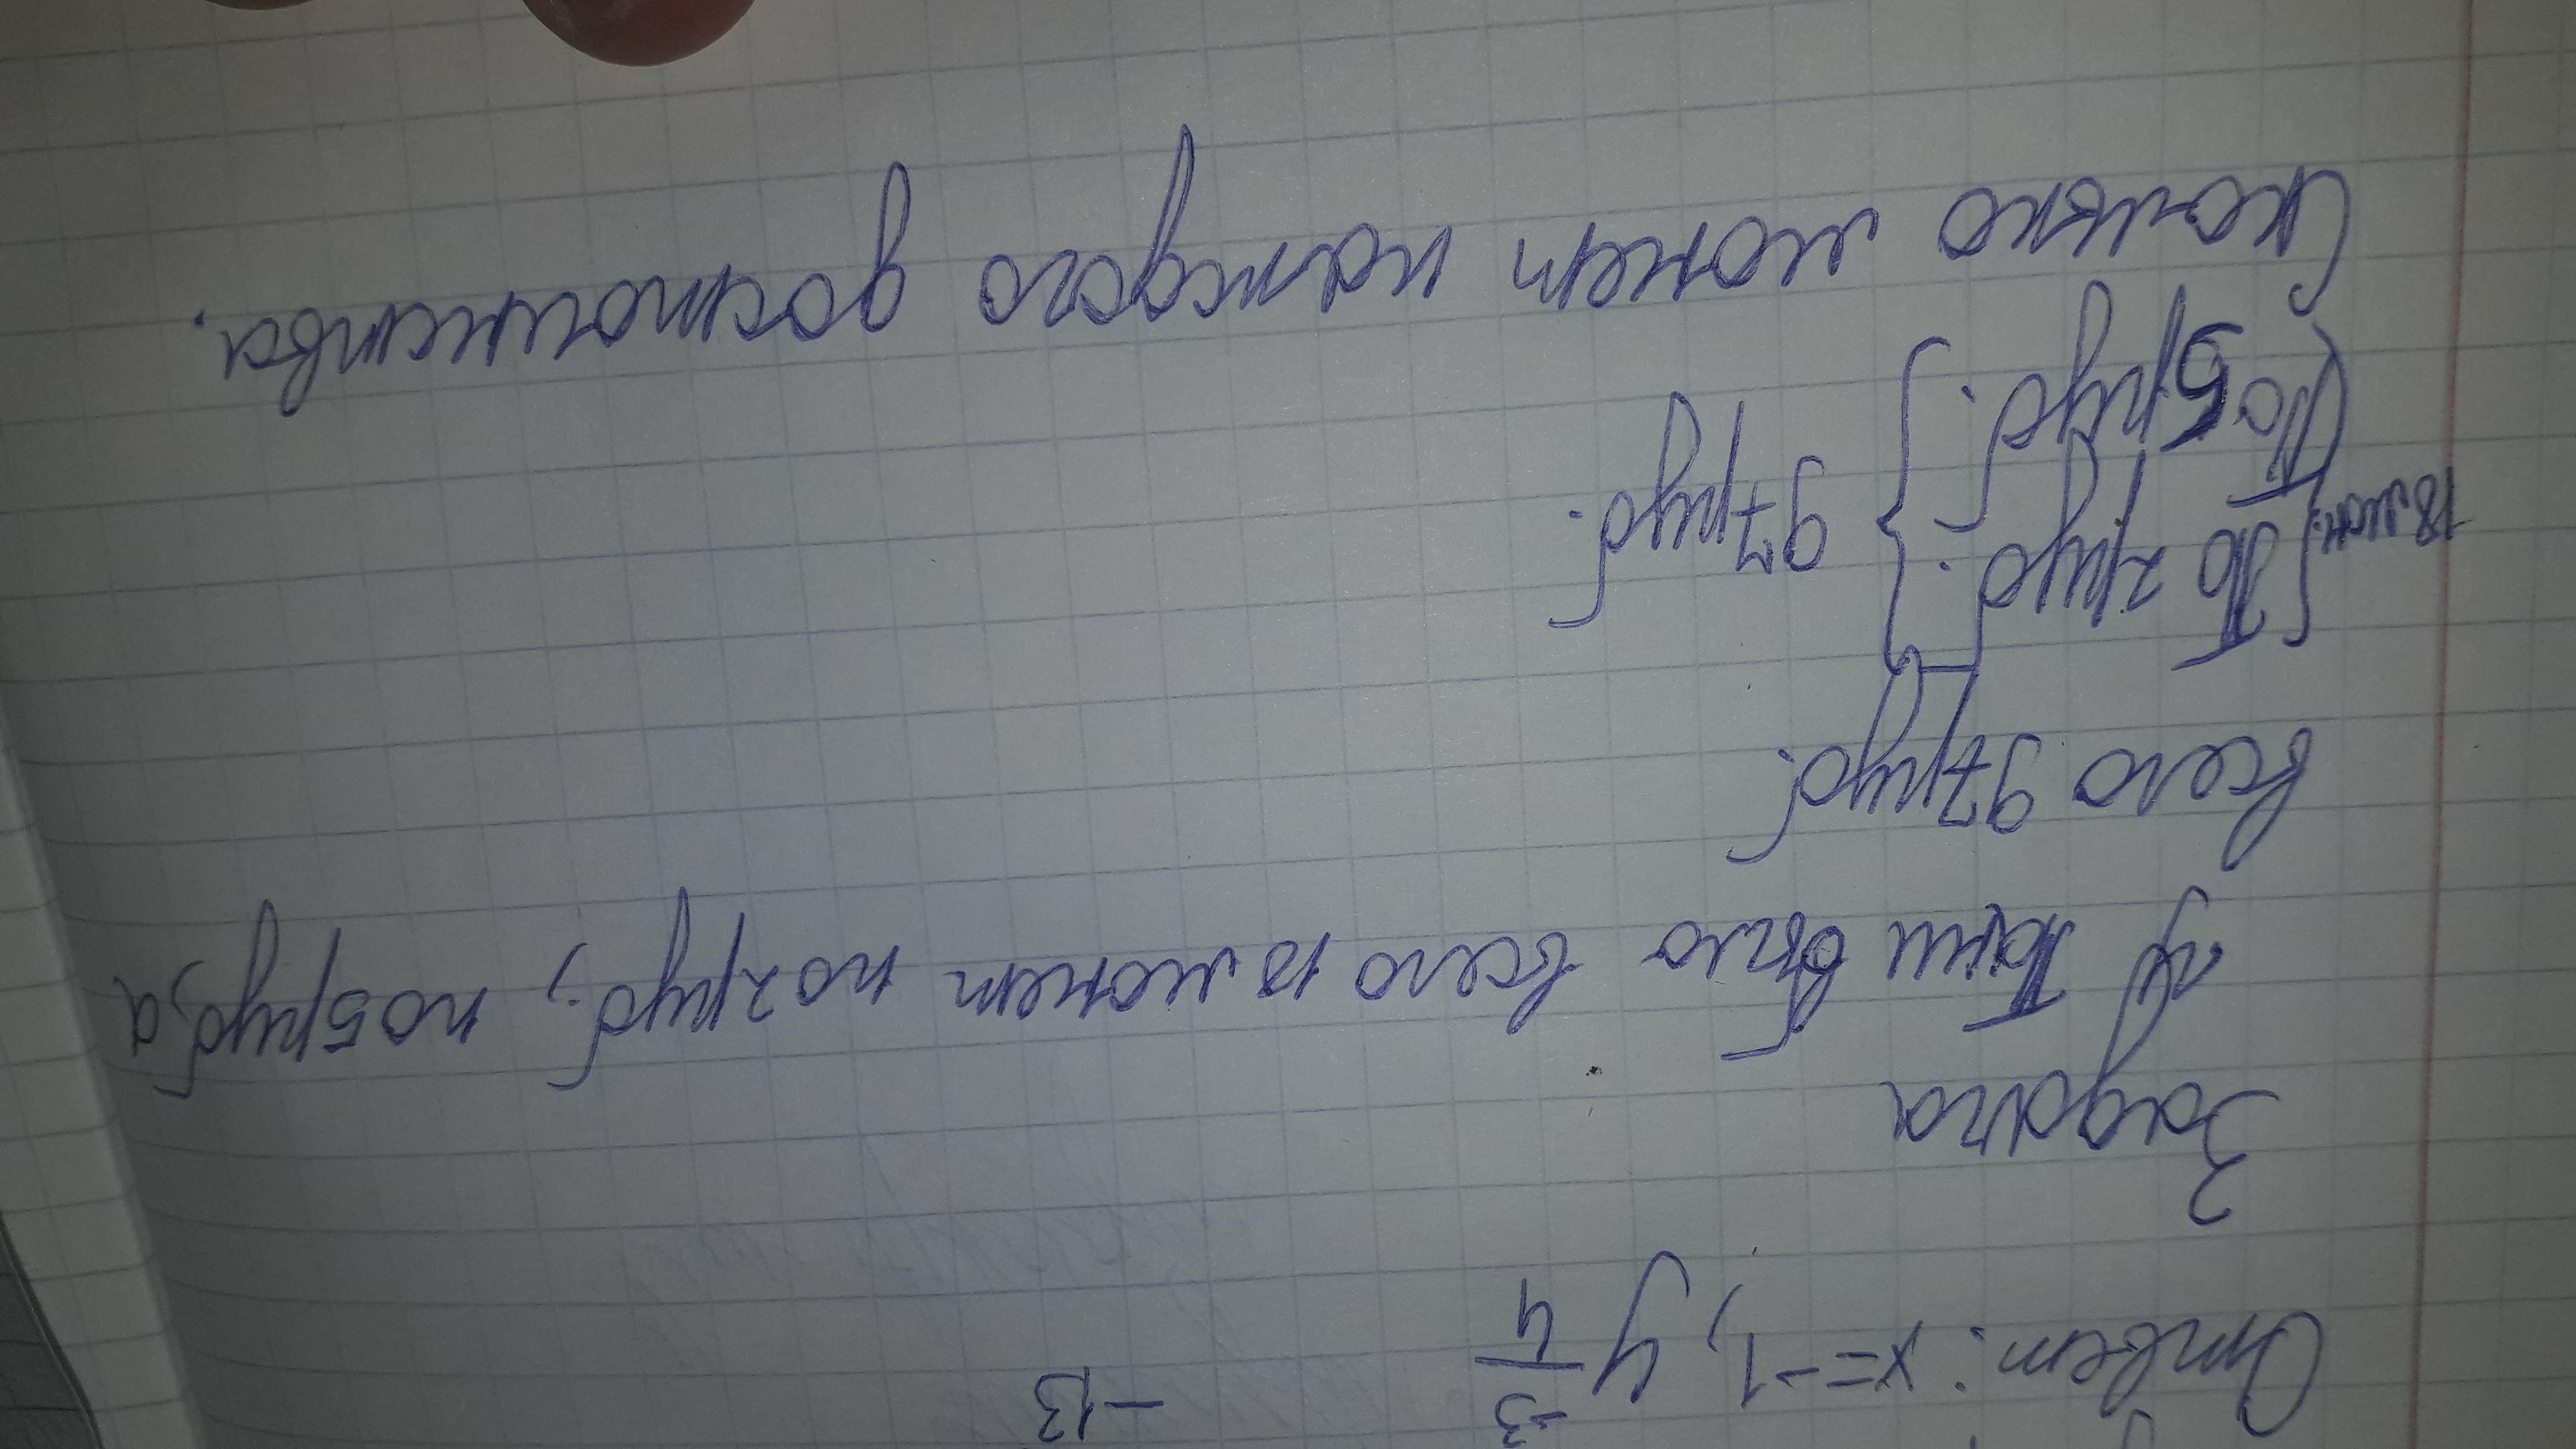 -13
Ответ: x=-1, y -3/4
Задача
У Пети было всего 18 монет по 2 руб., по 5 руб, а
всего 97 руб.
18 мон. { По 2 руб. } 97 руб.
По 5 руб.
Сколько монет каждого достоинства.